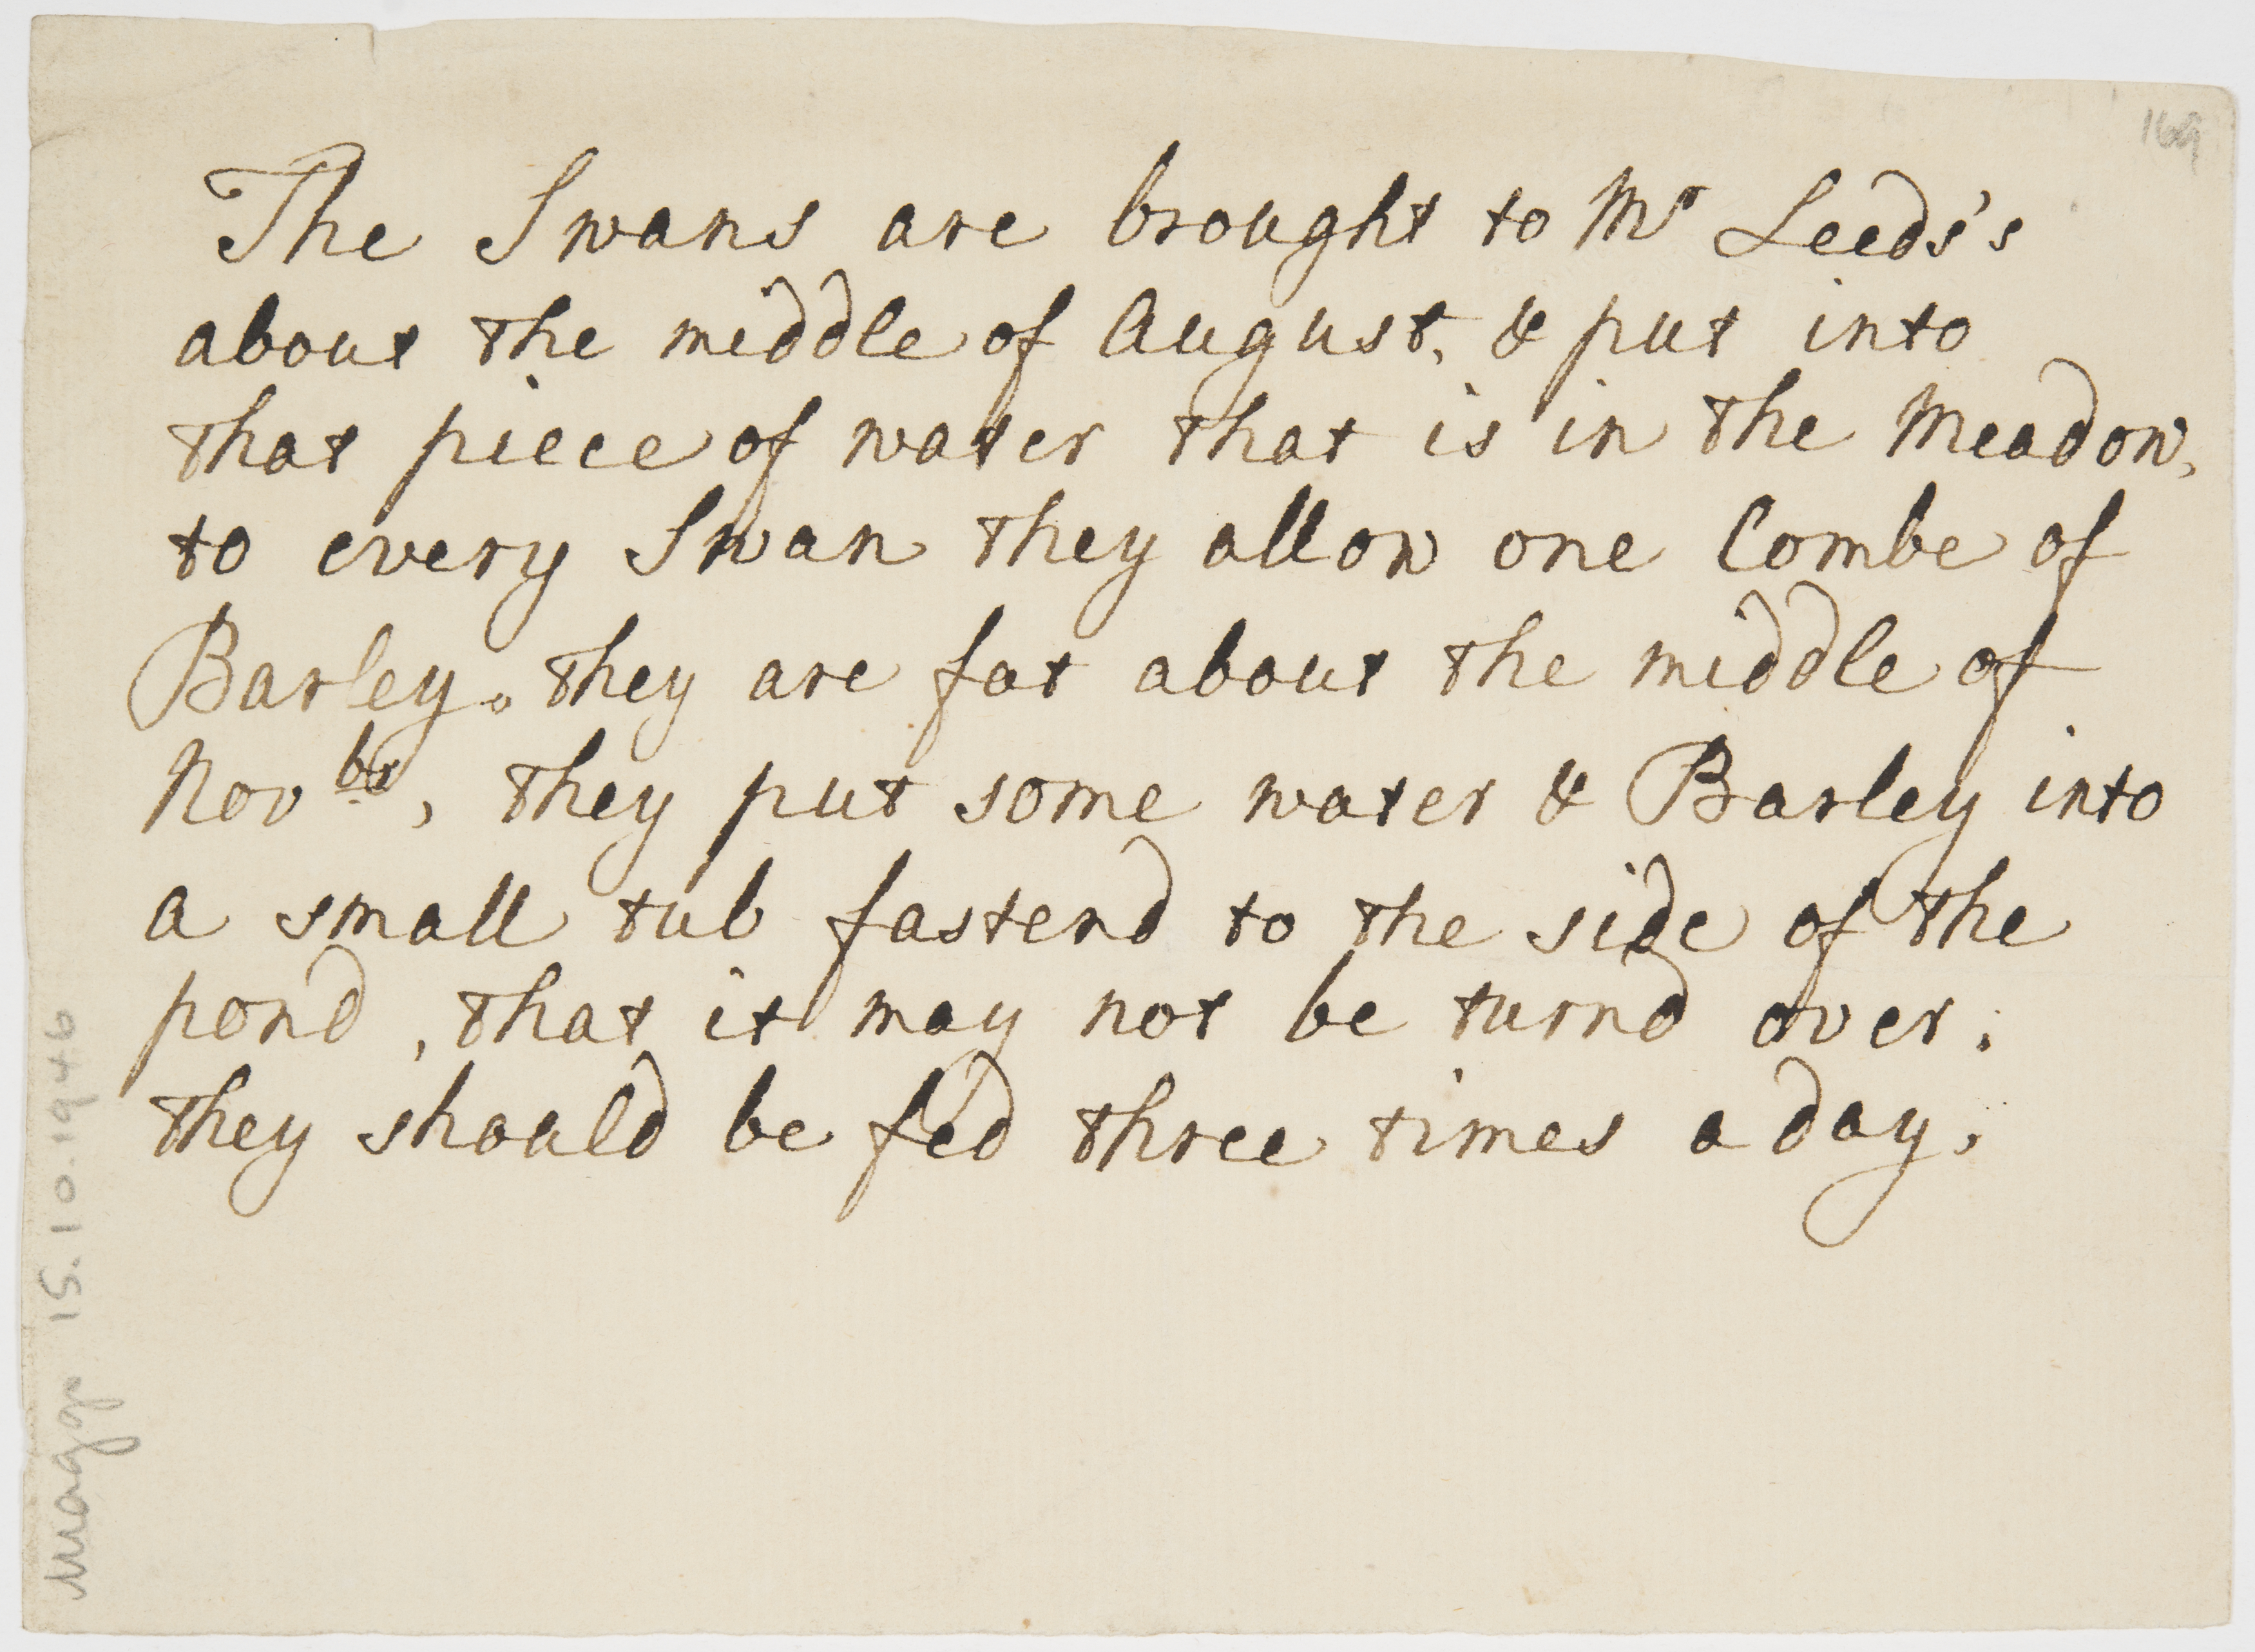 169
The Swans are brought to Mr Leeds's
about the middle of August, & put into
that piece of water that is in the Meadow,
to every Swan they allow one Combe of
Barley. they are fat about the middle of
Novbr, they put some water & Barley into
a small tub fastend to the side of the
pond, that it may not be turnd over.
they should be fed three times a day.
Maggs 15.10.1946